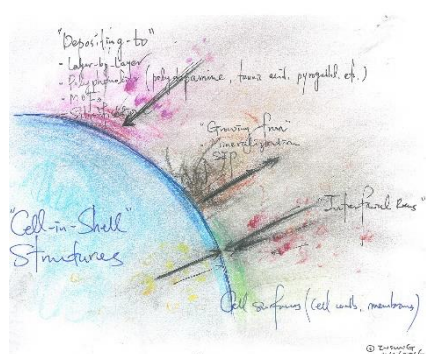 "Depositing-to"
- Layer-by-Layer
- Polyphenolic (polydopamine, tannic acid, pyrogallol, etc.)
- MOFs
"Growing-from"
- Mineralization
- SIP
"Interfacial Rxns"
"Cell-in-Shell"
Structures
Cell surfaces (cell walls, membrane)